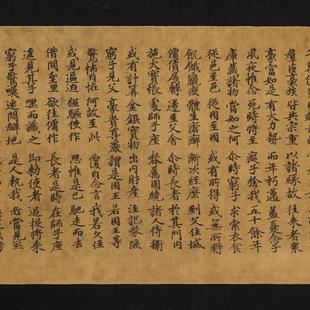 群臣豪族 皆共宗重 以諸緣故 往來者眾
豪富如是 有大力勢 而年朽邁 益憂念子
夙夜惟念 死時將至 癡子捨我 五十餘年
庫藏諸物 當如之何 尒時窮子 求索衣食
從邑至邑 從國至國 或有所得 或無所得
飢餓羸瘦 體生瘡癬 漸次經歷 到父住城
傭賃展轉 遂至父舍 尒時長者 於其門內
施大寶帳 處師子座 眷屬圍繞 諸人侍衛
或有計算 金銀寶物 出內財產 注記券疏
窮子見父 豪貴尊嚴 謂是國王 若國王等
驚怖自怪 何故至此 覆自念言 我若久住
或見逼迫 強驅使作 思惟是已 馳走而去
借問貧里 欲往傭作 長者是時 在師子座
遙見其子 嘿而識之 即勅使者 追捉將來
窮子驚喚 迷悶躄地 是人執我 必當見